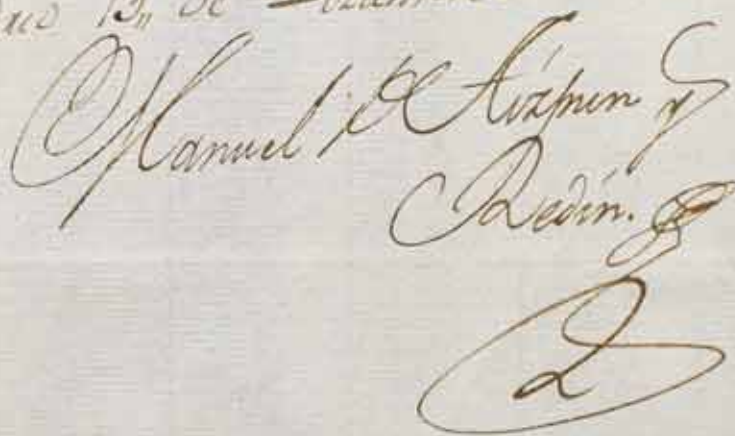 13,, de
Manuel de Aizpun y
Redin.